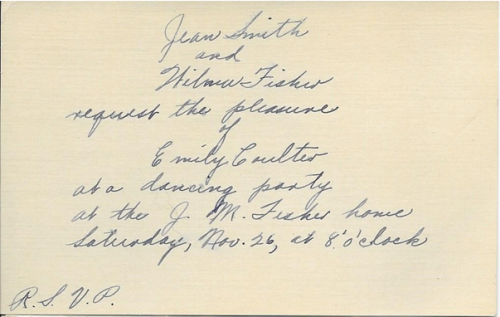 Jean Smith
and
Wilma Fisher
request the pleasure
of
Emily Coulter
at a dancing party
at the J. M. Fisher home
Saturday, Nov. 26, at 8 o'clock
R. S. V. P.